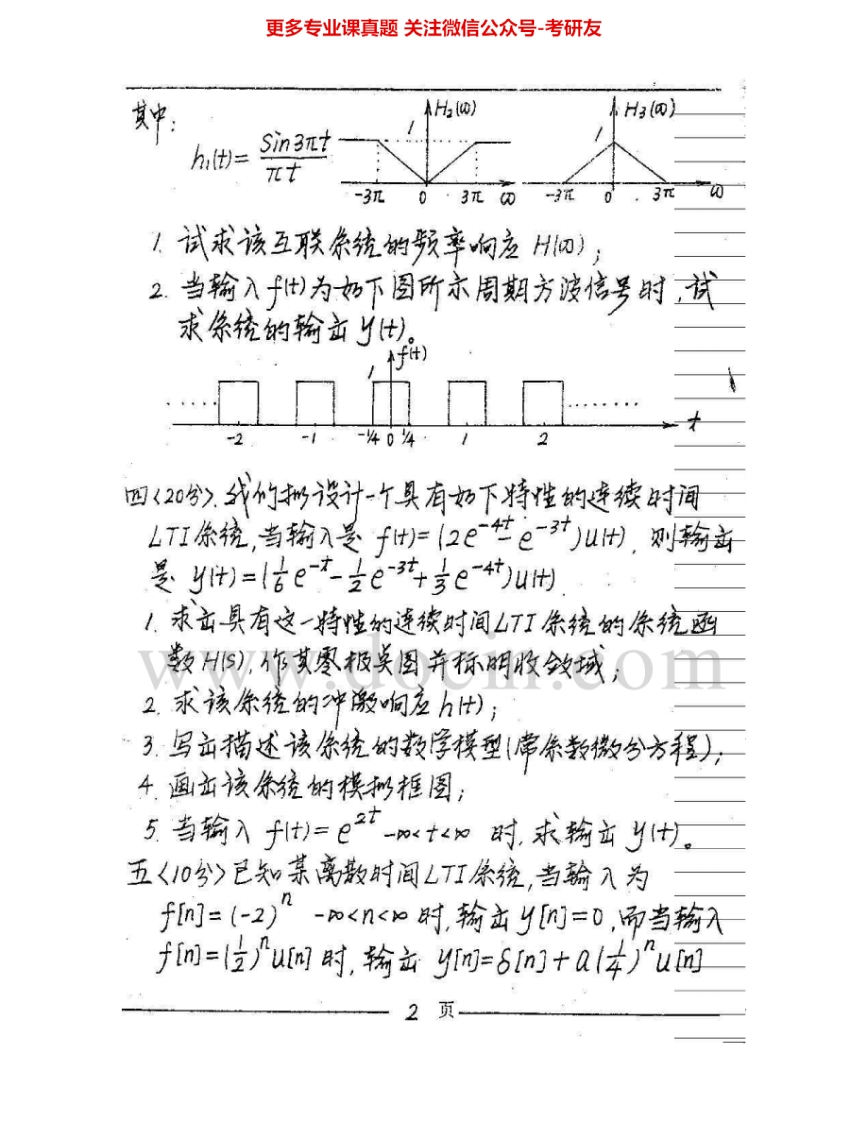 更多专业课真题 关注微信公众号-考研友
其中:
h₁(t)= Sin3πt / πt
H₂(ω)
1
-3π 0 3π ω
H₃(ω)
1
-3π 0 3π ω
1. 试求该互联系统的频率响应 H(ω);
2. 当输入 f(t)为如下图所示周期方波信号时,试
求系统的输出 y(t)。
f(t)
1
-2 -1 -1/4 0 1/4 1 2 t
四<20分>. 我们拟设计一个具有如下特性的连续时间
LTI系统,当输入是 f(t)=(2e^{-4t}-e^{-3t})u(t), 则输出
是 y(t)=(1/6 e^{-t}-1/2 e^{-3t}+1/3 e^{-4t})u(t)
1. 求出具有这一特性的连续时间LTI系统的系统函
数H(S),作其零极点图并标明收敛域;
www.docin.com
2. 求该系统的冲激响应h(t);
3. 写出描述该系统的数学模型(常系数微分方程);
4. 画出该系统的模拟框图;
5. 当输入 f(t)=e^{2t} -∞<t<∞ 时,求输出 y(t)。
五<10分>已知某离散时间LTI系统,当输入为
f[n]=(-2)^n -∞<n<∞时,输出y[n]=0,而当输入
f[n]=(1/2)^n u[n]时,输出 y[n]=δ[n]+a(1/4)^n u[n]
2 页